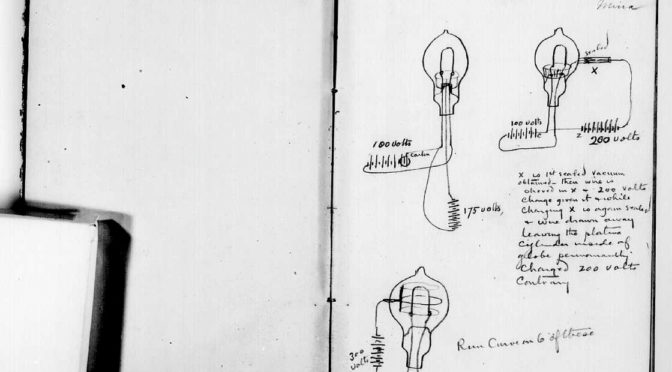 Mina
sealed
X
100 volts
carbon
100 volts
2
200 volts
175 volts,
X is 1st sealed vacuum
obtained - then wire is
shoved in X & 200 volts
charge given it & while
charging X is again sealed
& wire drawn away
leaving the platina
cylinder inside of
globe permanently
charged 200 volts
Contrary
300
volts
Run Curve on 6 of these